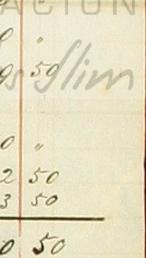 ACION
0 "
0 50
s Slim
0 "
2 50
3 50
0 50